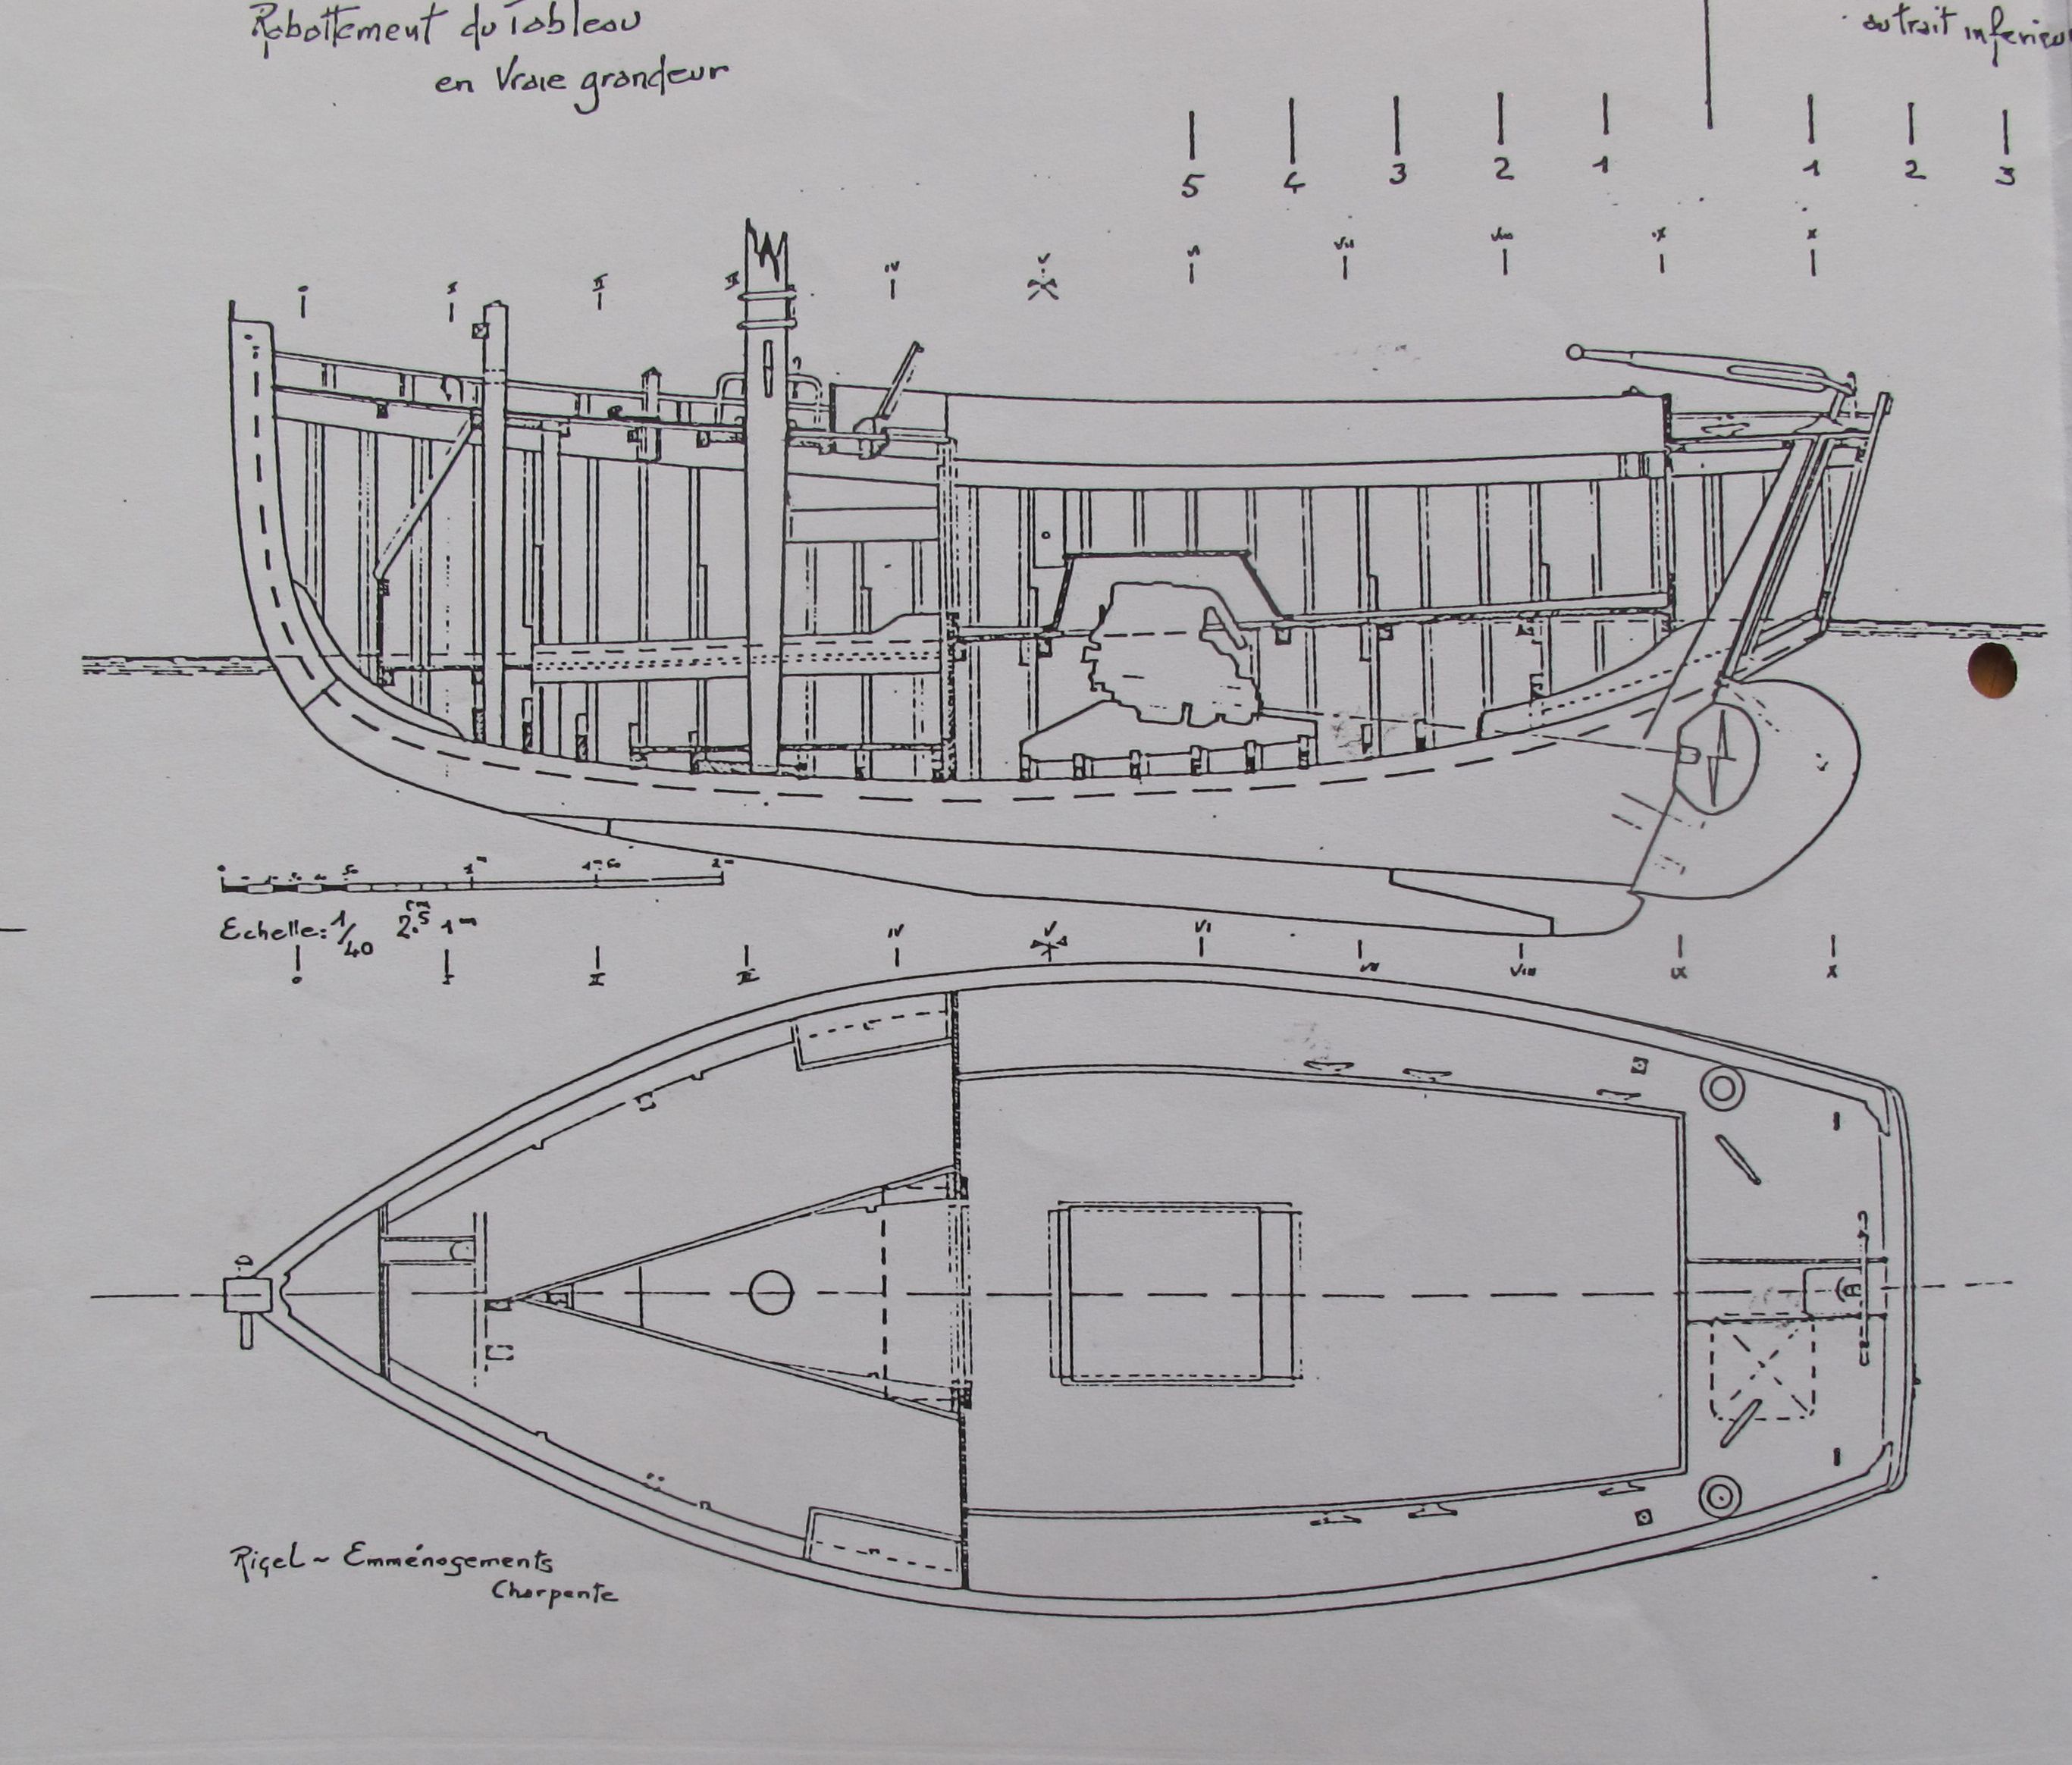 Rabattement du Tableau
en Vraie grandeur
au trait inférieu
5 4 3 2 1 1 2 3
IV V VI VII VIII IX X
0 10 20 30 40 50 1m 1m50 2m
Echelle: 1/40 2.5 cm 1m
0 I II III IV V VI VII VIII IX X
Rigel ~ Emménagements
Charpente